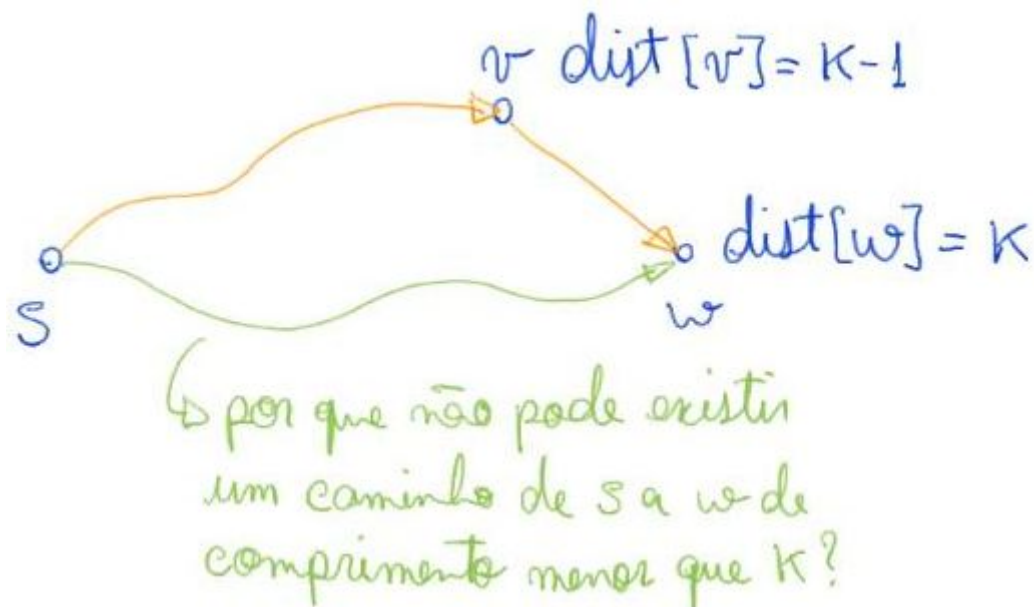 v dist[v] = K-1
dist[w] = K
S
w
por que não pode existir
um caminho de s a w de
comprimento menor que K?